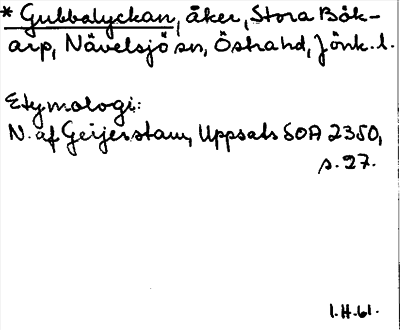 * Gubbalyckan, åker, Stora Båk-
arp, Nävelsjö sn, Östra hd, Jönk. l.
Etymologi:
N. af Geijerstam, Uppsats SOA 2350,
s. 27.
1.H.61.